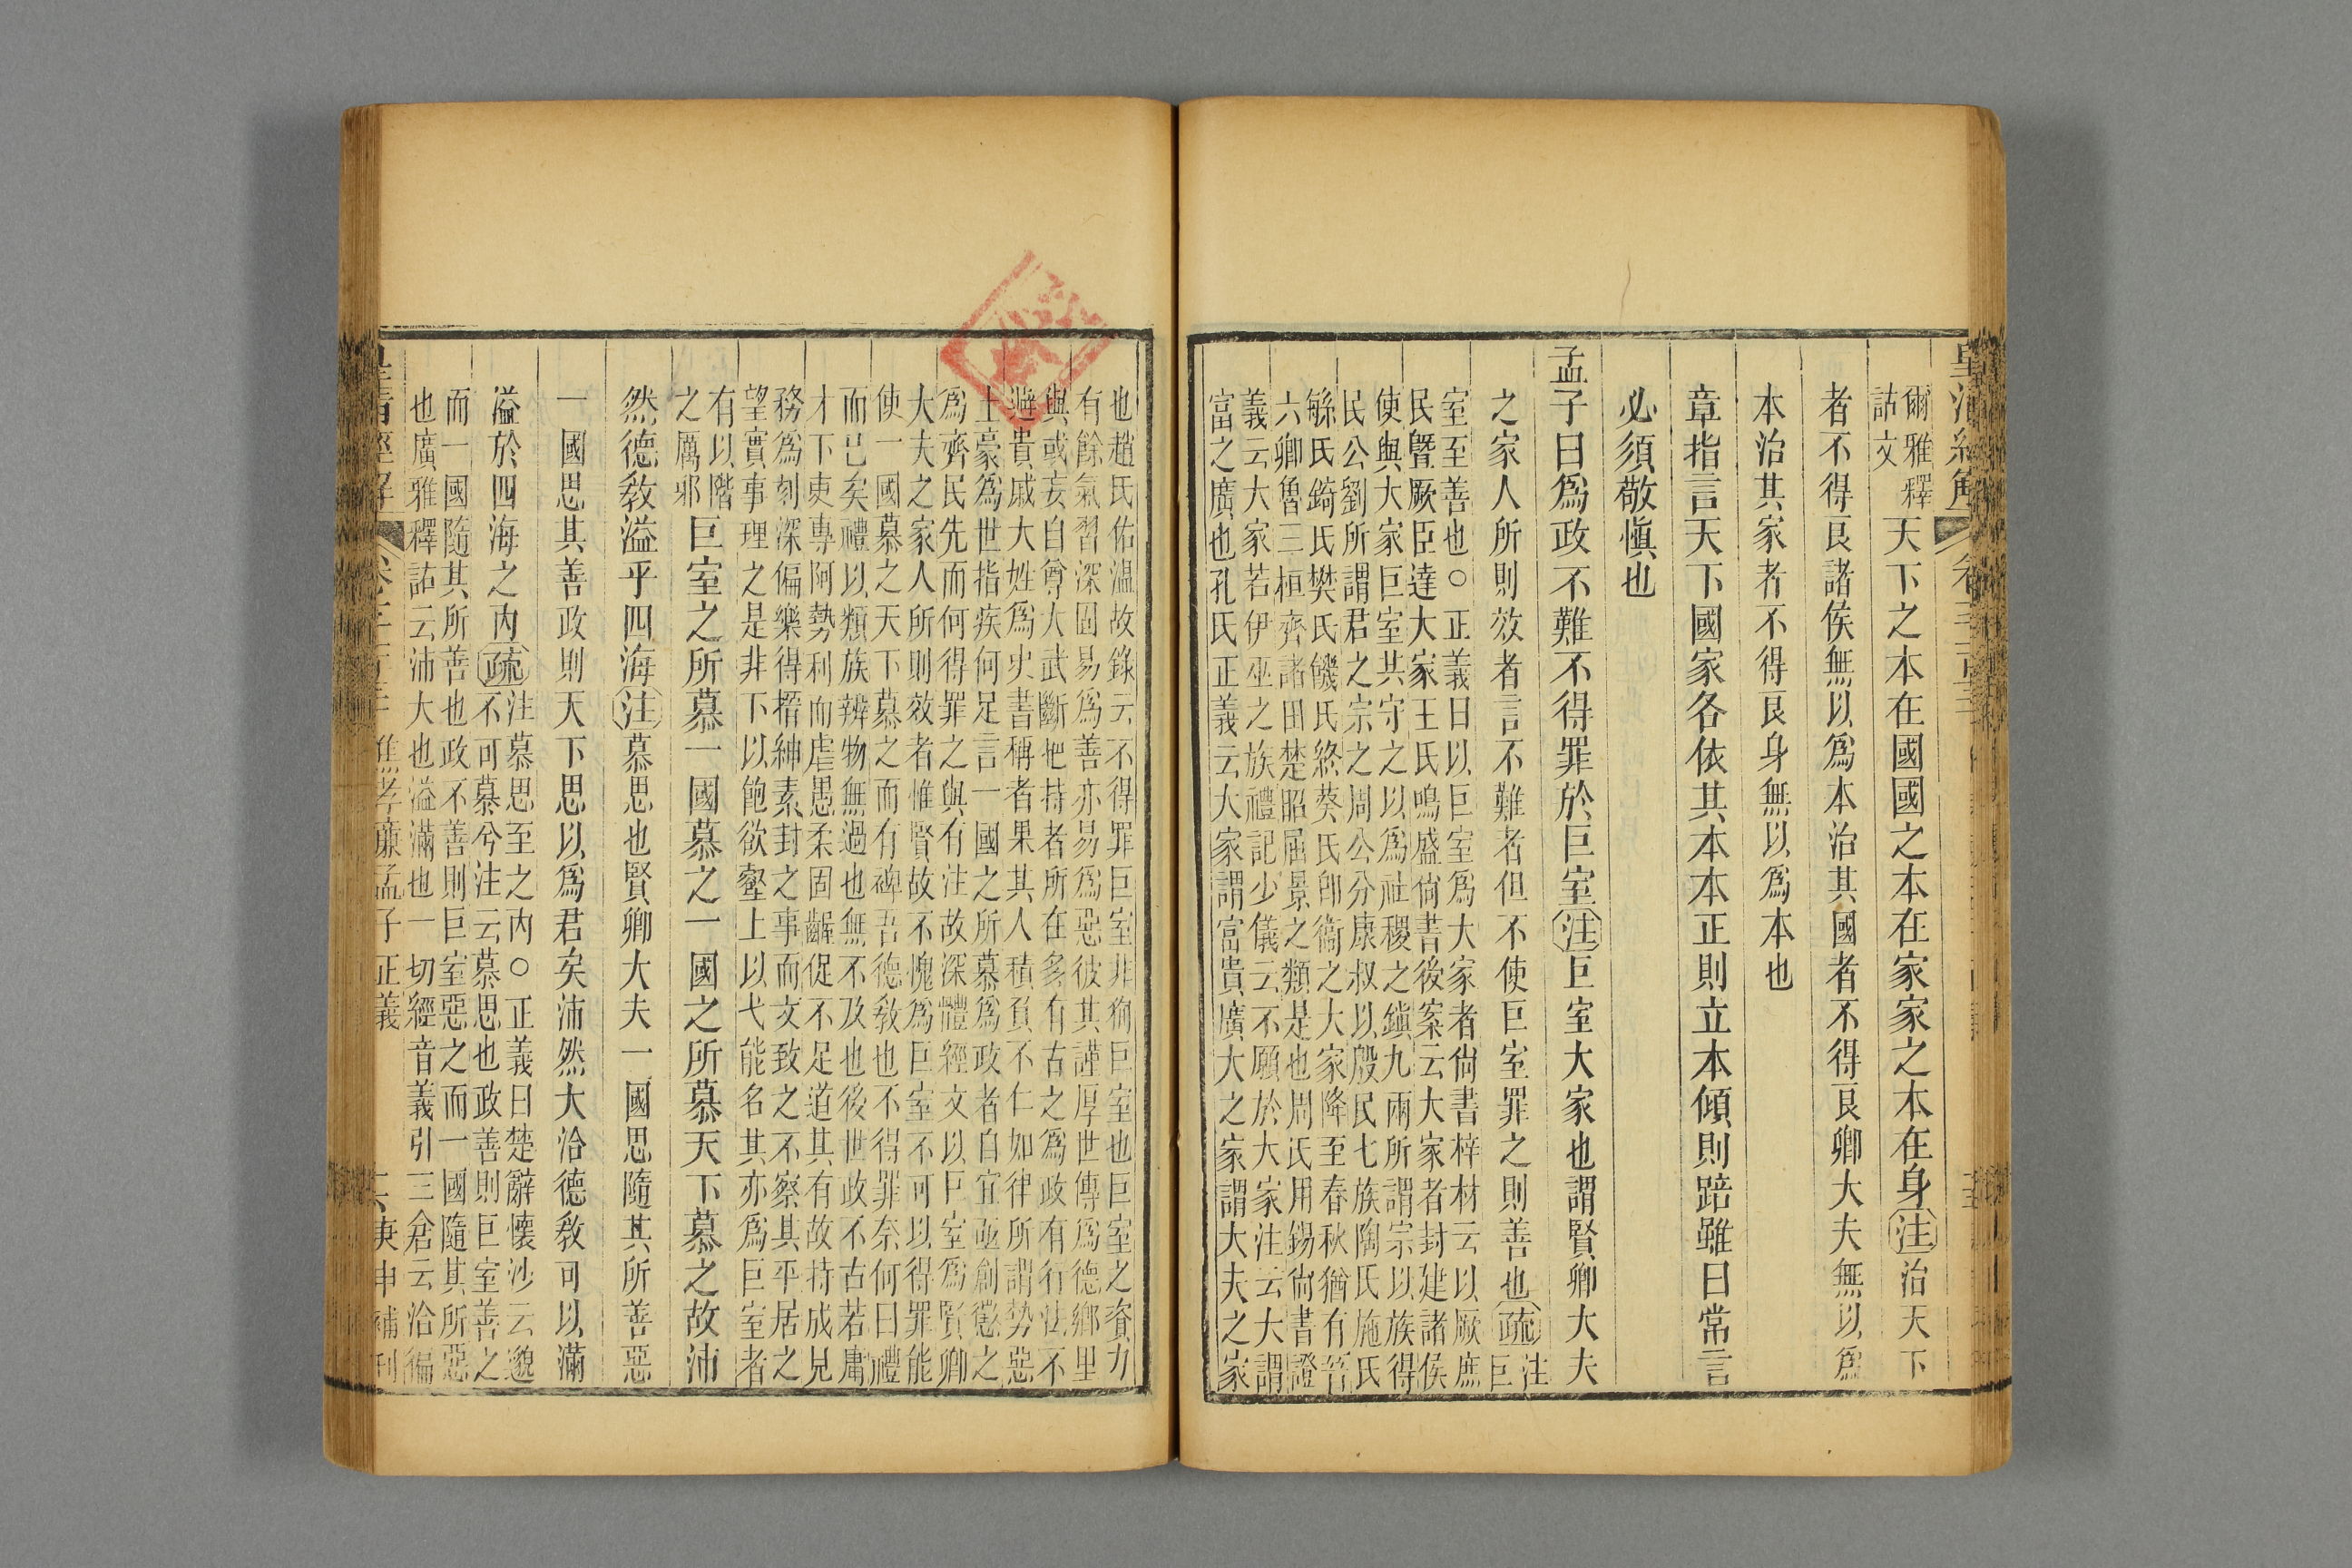 爾雅釋
詁文
天下之本在國國之本在家家之本在身注治天下
者不得良諸侯無以爲本治其國者不得良卿大夫無以爲
本治其家者不得良身無以爲本也
章指言天下國家各依其本本正則立本傾則踣雖曰常言
必須敬愼也
孟子曰爲政不難不得罪於巨室注巨室大家也謂賢卿大夫
之家人所則效者言不難者但不使巨室罪之則善也疏注
巨
室至善也○正義曰以巨室爲大家者尙書梓材云以厥庶
民曁厥臣達大家王氏鳴盛尙書後案云大家者封建諸侯
使與大家巨室共守之以爲社稷之鎭九兩所謂宗以族得
民公劉所謂君之宗之周公分康叔以殷民七族陶氏施氏
緐氏錡氏樊氏饑氏終葵氏卽衞之大家降至春秋猶有晉
六卿魯三桓齊諸田楚昭屈景之類是也周氏用錫尙書證
義云大家若伊巫之族禮記少儀云不願於大家注云大謂
富之廣也孔氏正義云大家謂富貴廣大之家謂大夫之家
也趙氏佑温故錄云不得罪巨室非狥巨室也巨室之資力
有餘氣習深固易爲善亦易爲惡彼其謹厚世傳爲德鄉里
與或妄自尊大武斷把持者所在多有古之爲政有行法不
避貴戚大姓爲史書稱者果其人積負不仁如律所謂勢惡
土豪爲世指疾何足言一國之所慕爲政者自宜亟創懲之
爲齊民先而何得罪之與有注故深體經文以巨室爲賢卿
大夫之家人所則效者惟賢故不愧爲巨室不可以得罪能
使一國慕之天下慕之而有碑吾德敎也不得罪奈何曰禮
而已矣禮以類族辨物無過也無不及也後世政不古若庸
才下吏專阿勢利而虐愚柔固齷促不足道其有故持成見
務爲刻深偏樂得搢紳素封之事而文致之不察其平居之
望實事理之是非下以飽欲壑上以弋能名其亦爲巨室者
有以階
之厲邪
巨室之所慕一國慕之一國之所慕天下慕之故沛
然德敎溢乎四海注慕思也賢卿大夫一國思隨其所善惡
一國思其善政則天下思以爲君矣沛然大洽德敎可以滿
溢於四海之內疏
注慕思至之內○正義曰楚辭懷沙云邈
不可慕兮注云慕思也政善則巨室善之
而一國隨其所善也政不善則巨室惡之而一國隨其所惡
也廣雅釋詁云沛大也溢滿也一切經音義引三倉云洽徧
皇清經解
焦孝廉孟子正義
庚申補刊